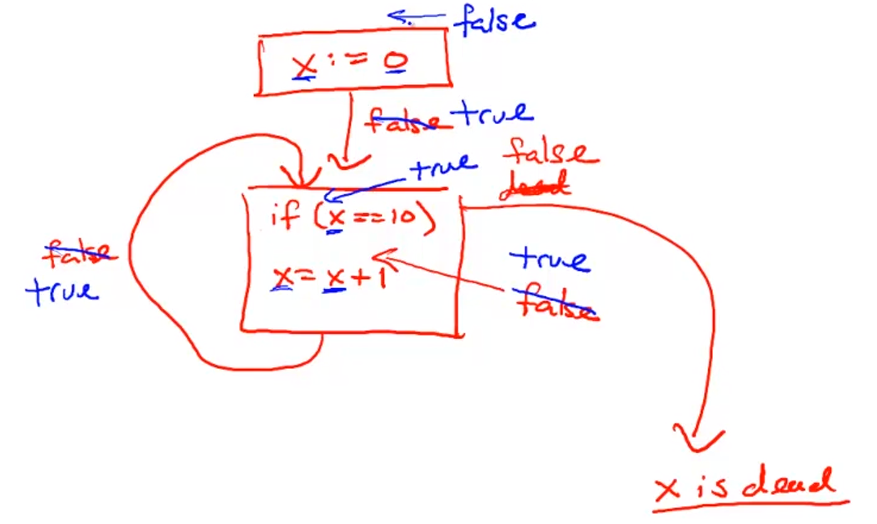 false
x := 0
false true
true
false
dead
if (x == 10)
false
true
x = x + 1
true
false
x is dead